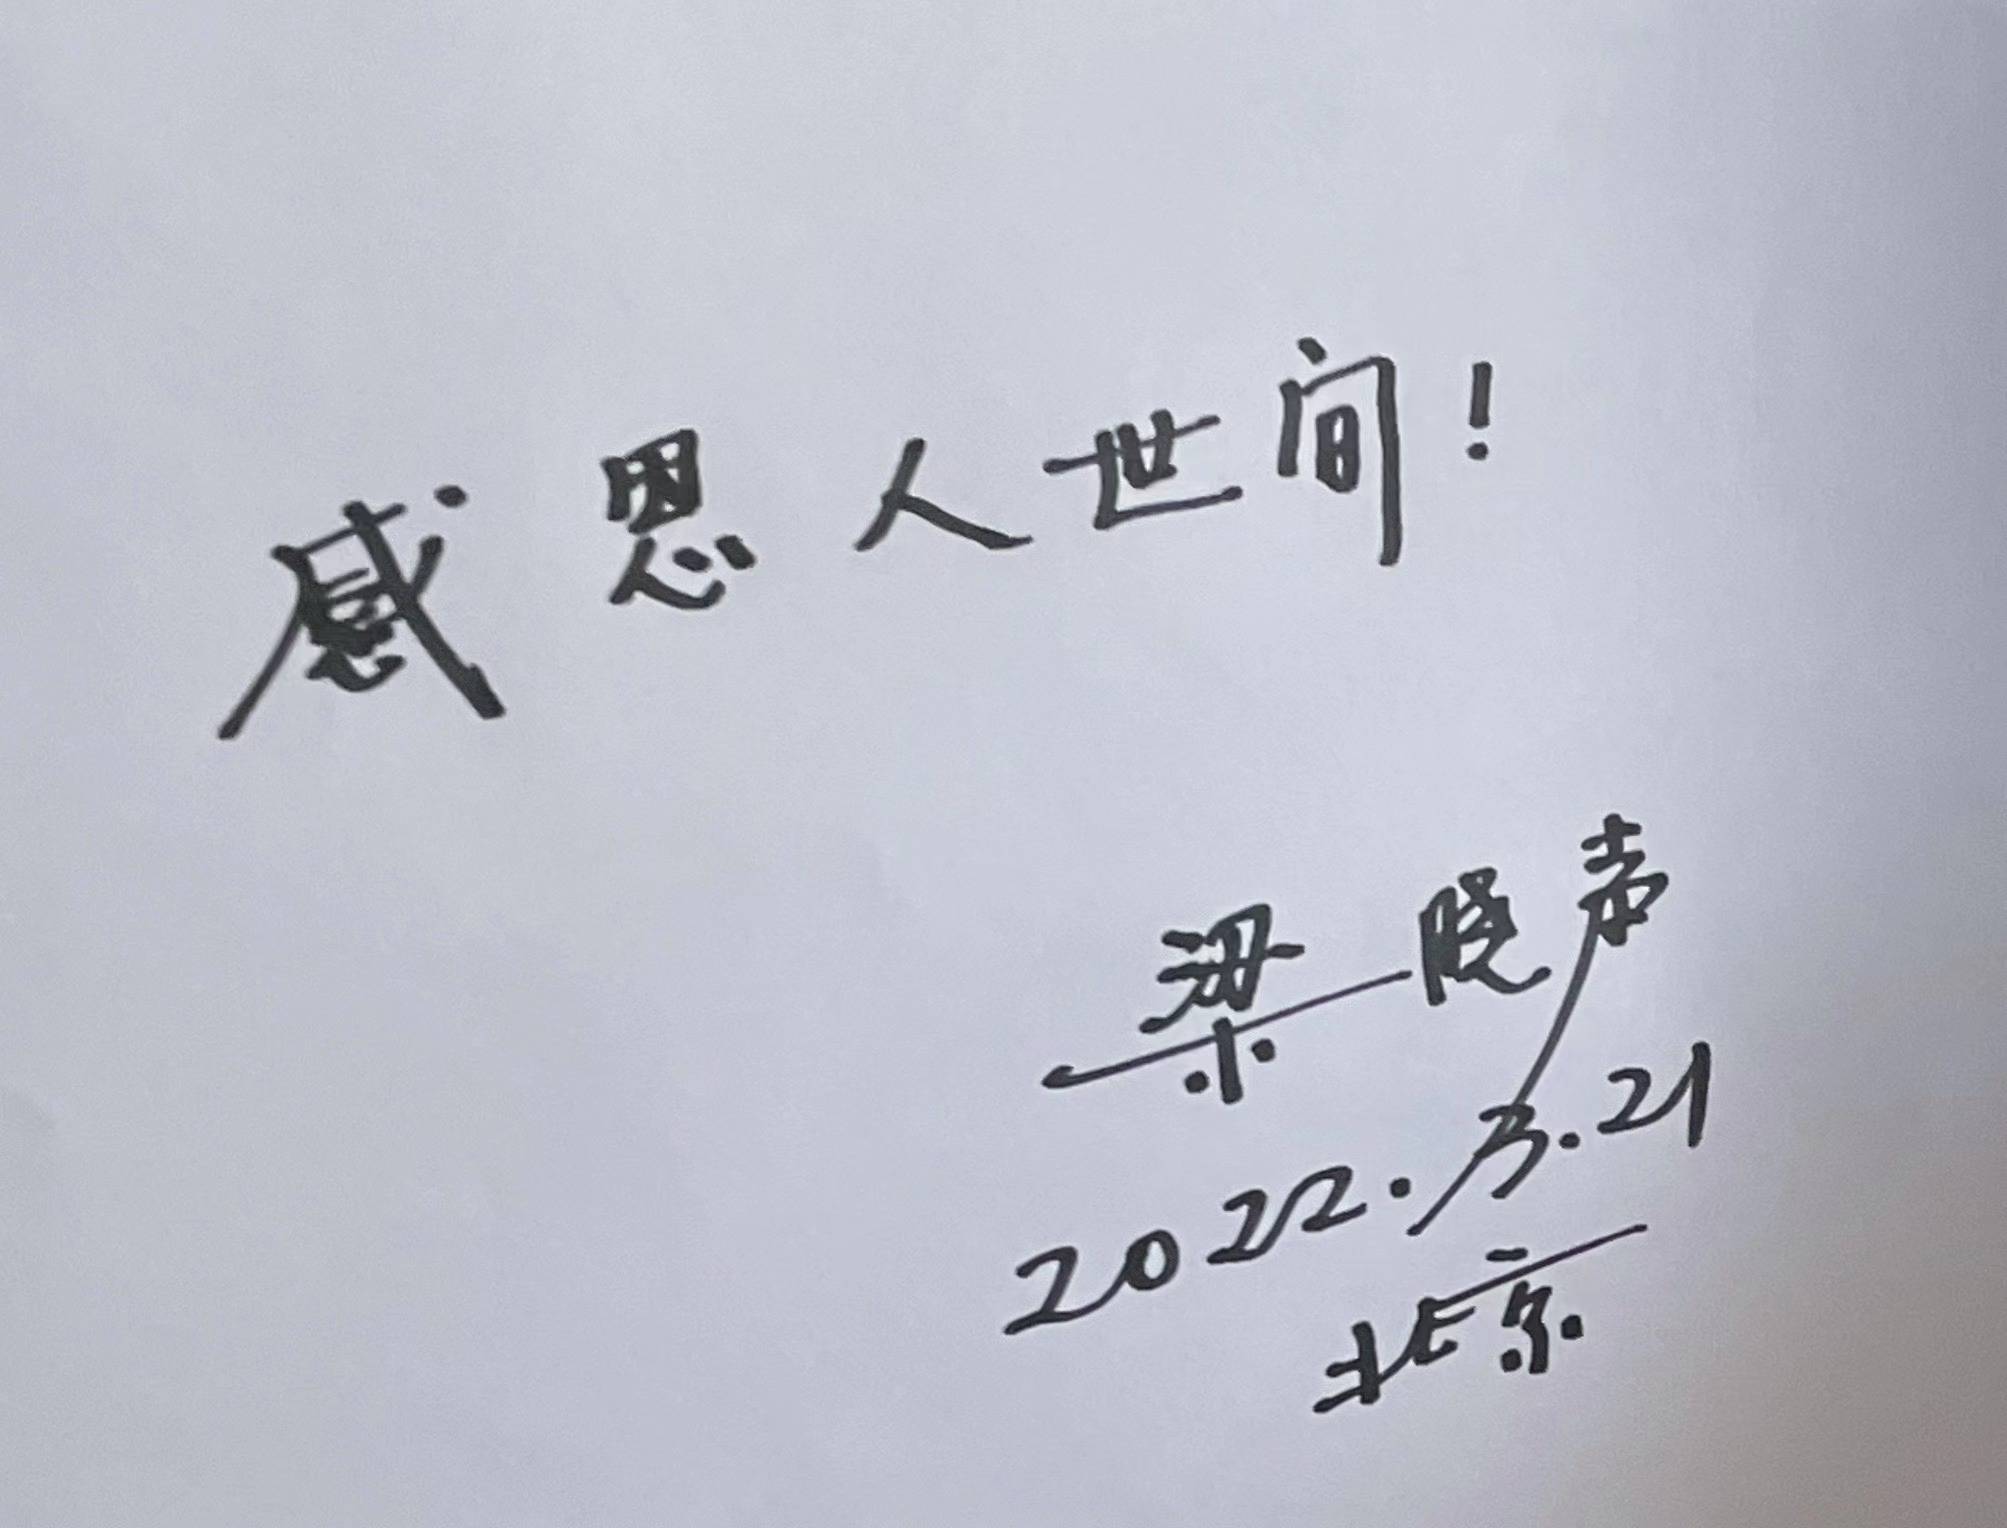 感恩人世间!
梁晓声
2022.3.21
北京